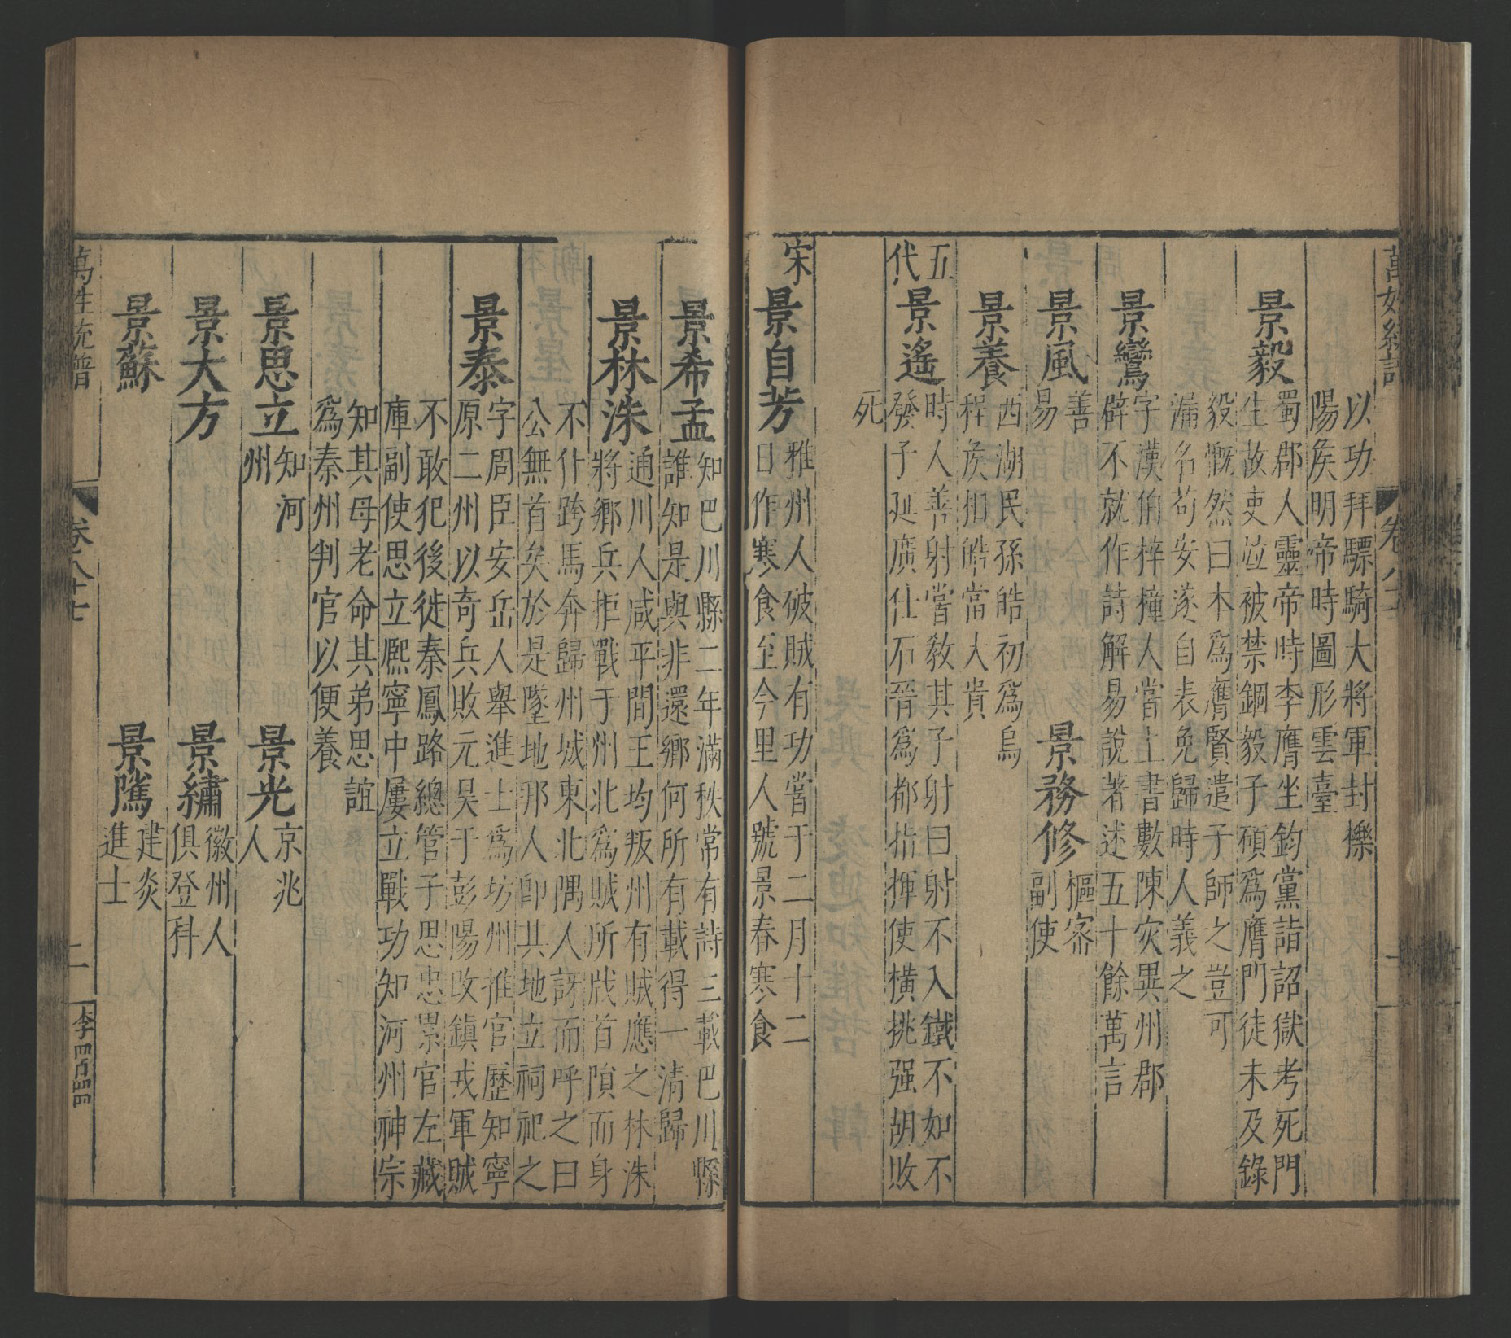 以功拜驃騎大將軍封櫟
陽矦明帝時圖形雲臺
景毅
蜀郡人靈帝時李膺坐鈎黨詣詔獄考死門
生故吏竝被禁錮毅子碩爲膺門徒未及錄
毅慨然曰本爲膺賢遣子師之豈可
漏名苟安遂自表免歸時人義之
景鸞
字漢伯梓橦人嘗上書數陳灾異州郡
辟不就作詩解易說著述五十餘萬言
景風
善
易
景務修
樞宻
副使
景養
西湖民孫皓初爲烏
程矦相皓當大貴
五
代
景遙
時人善射嘗敎其子射曰射不入鐵不如不
發子延廣仕石晉爲都指揮使橫挑强胡敗
死
宋
景自芳
雅州人破賊有功嘗于二月十二
日作寒食至今里人號景春寒食
景希孟
知巴川縣二年滿秋常有詩三載巴川縣
誰知是與非還鄉何所有載得一清歸
景林洙
通川人咸平間王均叛州有賊應之林洙
將鄉兵拒戰于州北爲賊所戕首隕而身
不仆跨馬奔歸州城東北隅人訝而呼之曰
公無首矣於是墜地邪人卽其地立祠祀之
景泰
字周臣安岳人舉進士爲坊州推官歷知寧
原二州以奇兵敗元昊于彭陽改鎮戎軍賊
不敢犯後徙秦鳳路總管子思忠累官左藏
庫副使思立熈寧中屢立戰功知河州神宗
知其母老命其弟思誼
爲秦州判官以便養
景思立
知河
州
景光
京兆
人
景大方
景繡
徽州人
俱登科
景蘇
景隲
建炎
進士
萬姓統譜
卷八十七
二
李四百四四